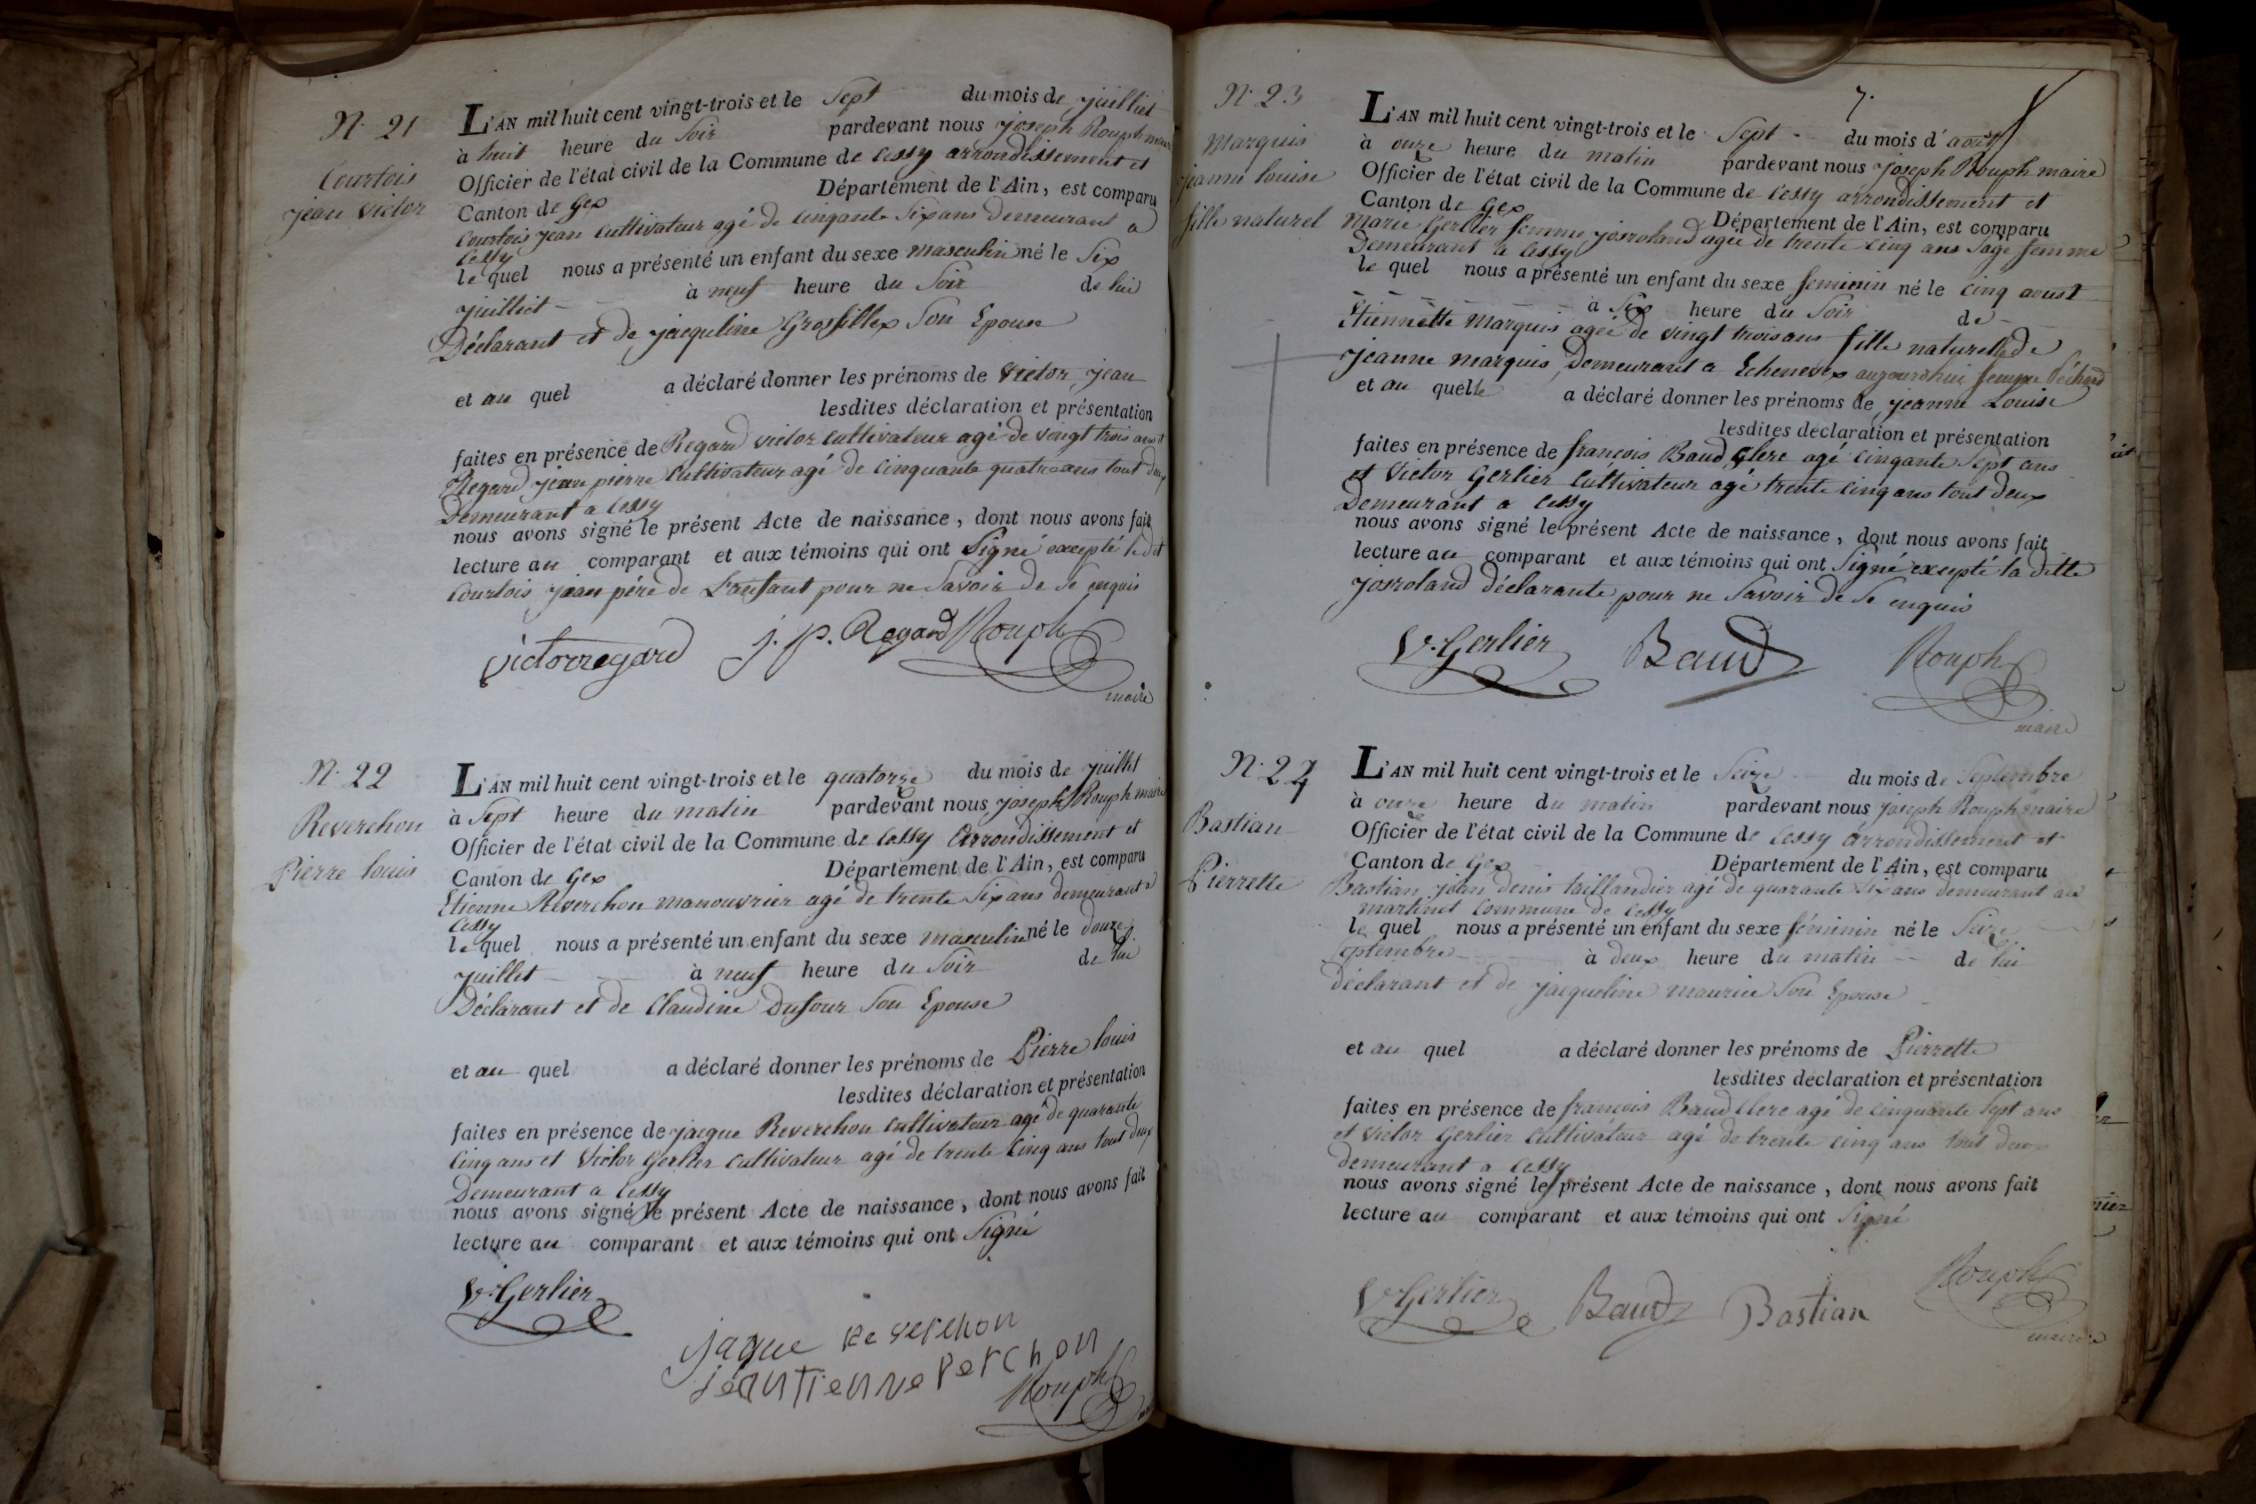 N.° 21
Courtois
jean victor
L'AN mil huit cent vingt-trois et le Sept du mois de juilliet
à huit heure du Soir pardevant nous joseph Rouph maire
Officier de l'état civil de la Commune de Cessy arrondissement et
Canton de Gex Département de l'Ain, est comparu
Courtois jean cultivateur agé de cinqante Six ans demeurant a
Cessy
le quel nous a présenté un enfant du sexe masculin né le Six
juilliet à neuf heure du Soir de lui
Déclarant et de jacquline Grosfillex Son Epouse
et au quel a déclaré donner les prénoms de Victor jean
lesdites déclaration et présentation
faites en présence de Regard victor cultivateur agé de vingt trois ans et
Regard jean pierre Cultivateur agé de cinquante quatre ans tout deux
Demeurant a Cessy
nous avons signé le présent Acte de naissance, dont nous avons fait
lecture au comparant et aux témoins qui ont Signé excepté ledit
Courtois jean pére de L'anfant pour ne Savoir de Se enquis
victorregard J. P. Regard Rouph
maire
N.° 22
Reverchon
Pierre louis
L'AN mil huit cent vingt-trois et le quatorze du mois de juillet
à Sept heure du matin pardevant nous joseph Rouph maire
Officier de l'état civil de la Commune de Cessy Arrondissement et
Canton de Gex Département de l'Ain, est comparu
Etienne Reverchon manouvrier agé de trente Six ans demeurant a
Cessy
le quel nous a présenté un enfant du sexe masculin né le douze
juillet à neuf heure du Soir de lui
Déclarant et de Claudine Dufour Son Epouse
et au quel a déclaré donner les prénoms de Pierre louis
lesdites déclaration et présentation
faites en présence de jacque Reverchon Cultivateur agé de quarante
Cinq ans et Victor Gerlier cultivateur agé de trente Cinq ans tout deux
Demeurant a Cessy
nous avons signé le présent Acte de naissance, dont nous avons fait
lecture au comparant et aux témoins qui ont Signé
V. Gerlier
jaque Reverchon
jeantienne Perchon
Rouph
N.° 23
Marquis
jeanne louise
fille naturel
7.
L'AN mil huit cent vingt-trois et le Sept du mois d'aoust
à onze heure du matin pardevant nous joseph Rouph maire
Officier de l'état civil de la Commune de Cessy arrondissement et
Canton de Gex Département de l'Ain, est comparu
Marie Gerlier femme josroland agée de trente cinq ans Sage femme
Demeurant a Cessy
le quel nous a présenté un enfant du sexe feminin né le cinq aoust
à Six heure du Soir de
Etiennette Marquis agée de vingt trois ans fille naturelle de
jeanne marquis Demeurant a Echenevex aujourdhui femme
et au quelle a déclaré donner les prénoms de jeanne Louise
lesdites déclaration et présentation
faites en présence de francois Baud Clerc agé cinqante Sept ans
et Victor Gerlier Cultivateur agé trente cinq ans tout deux
Demeurant a Cessy
nous avons signé le présent Acte de naissance, dont nous avons fait
lecture au comparant et aux témoins qui ont Signé excepté la ditte
josroland déclarante pour ne Savoir de Se enquis
V. Gerlier Baud Rouph
maire
N.° 24
Bastian
Pierrette
L'AN mil huit cent vingt-trois et le Seize du mois de Septembre
à onze heure du matin pardevant nous joseph Rouph maire
Officier de l'état civil de la Commune de Cessy arrondissement et
Canton de Gex Département de l'Ain, est comparu
Bastian jean denis taillandier agé de quarante Six ans demeurant au
martinet Commune de Cessy
le quel nous a présenté un enfant du sexe féminin né le Seize
Septembre à deux heure du matin de lui
déclarant et de jacqueline maurice Son Epouse
et au quel a déclaré donner les prénoms de Pierrette
lesdites déclaration et présentation
faites en présence de francois Baud Clerc agé de cinquante Sept ans
et victor Gerlier Cultivateur agé de trente cinq ans tout deux
demeurant a Cessy
nous avons signé le présent Acte de naissance, dont nous avons fait
lecture au comparant et aux témoins qui ont Signé
V. Gerlier Baud Bastian Rouph
maire